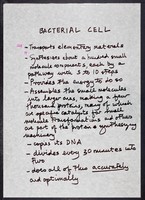 BACTERIAL CELL
- Transports elementary materials
- Synthesises about a hundred small
molecule components, each by a
pathway with 5 to 10 steps
- Provides the energy to do so
- Assembles the small molecules
into larger ones, making a few
thousand proteins, many of which
are specific catalysts for small
molecule transformations and others
are part of the protein synthesizing
machinery
- copies its DNA
- divides every 20 minutes into
two
- does all of this accurately
and optimally